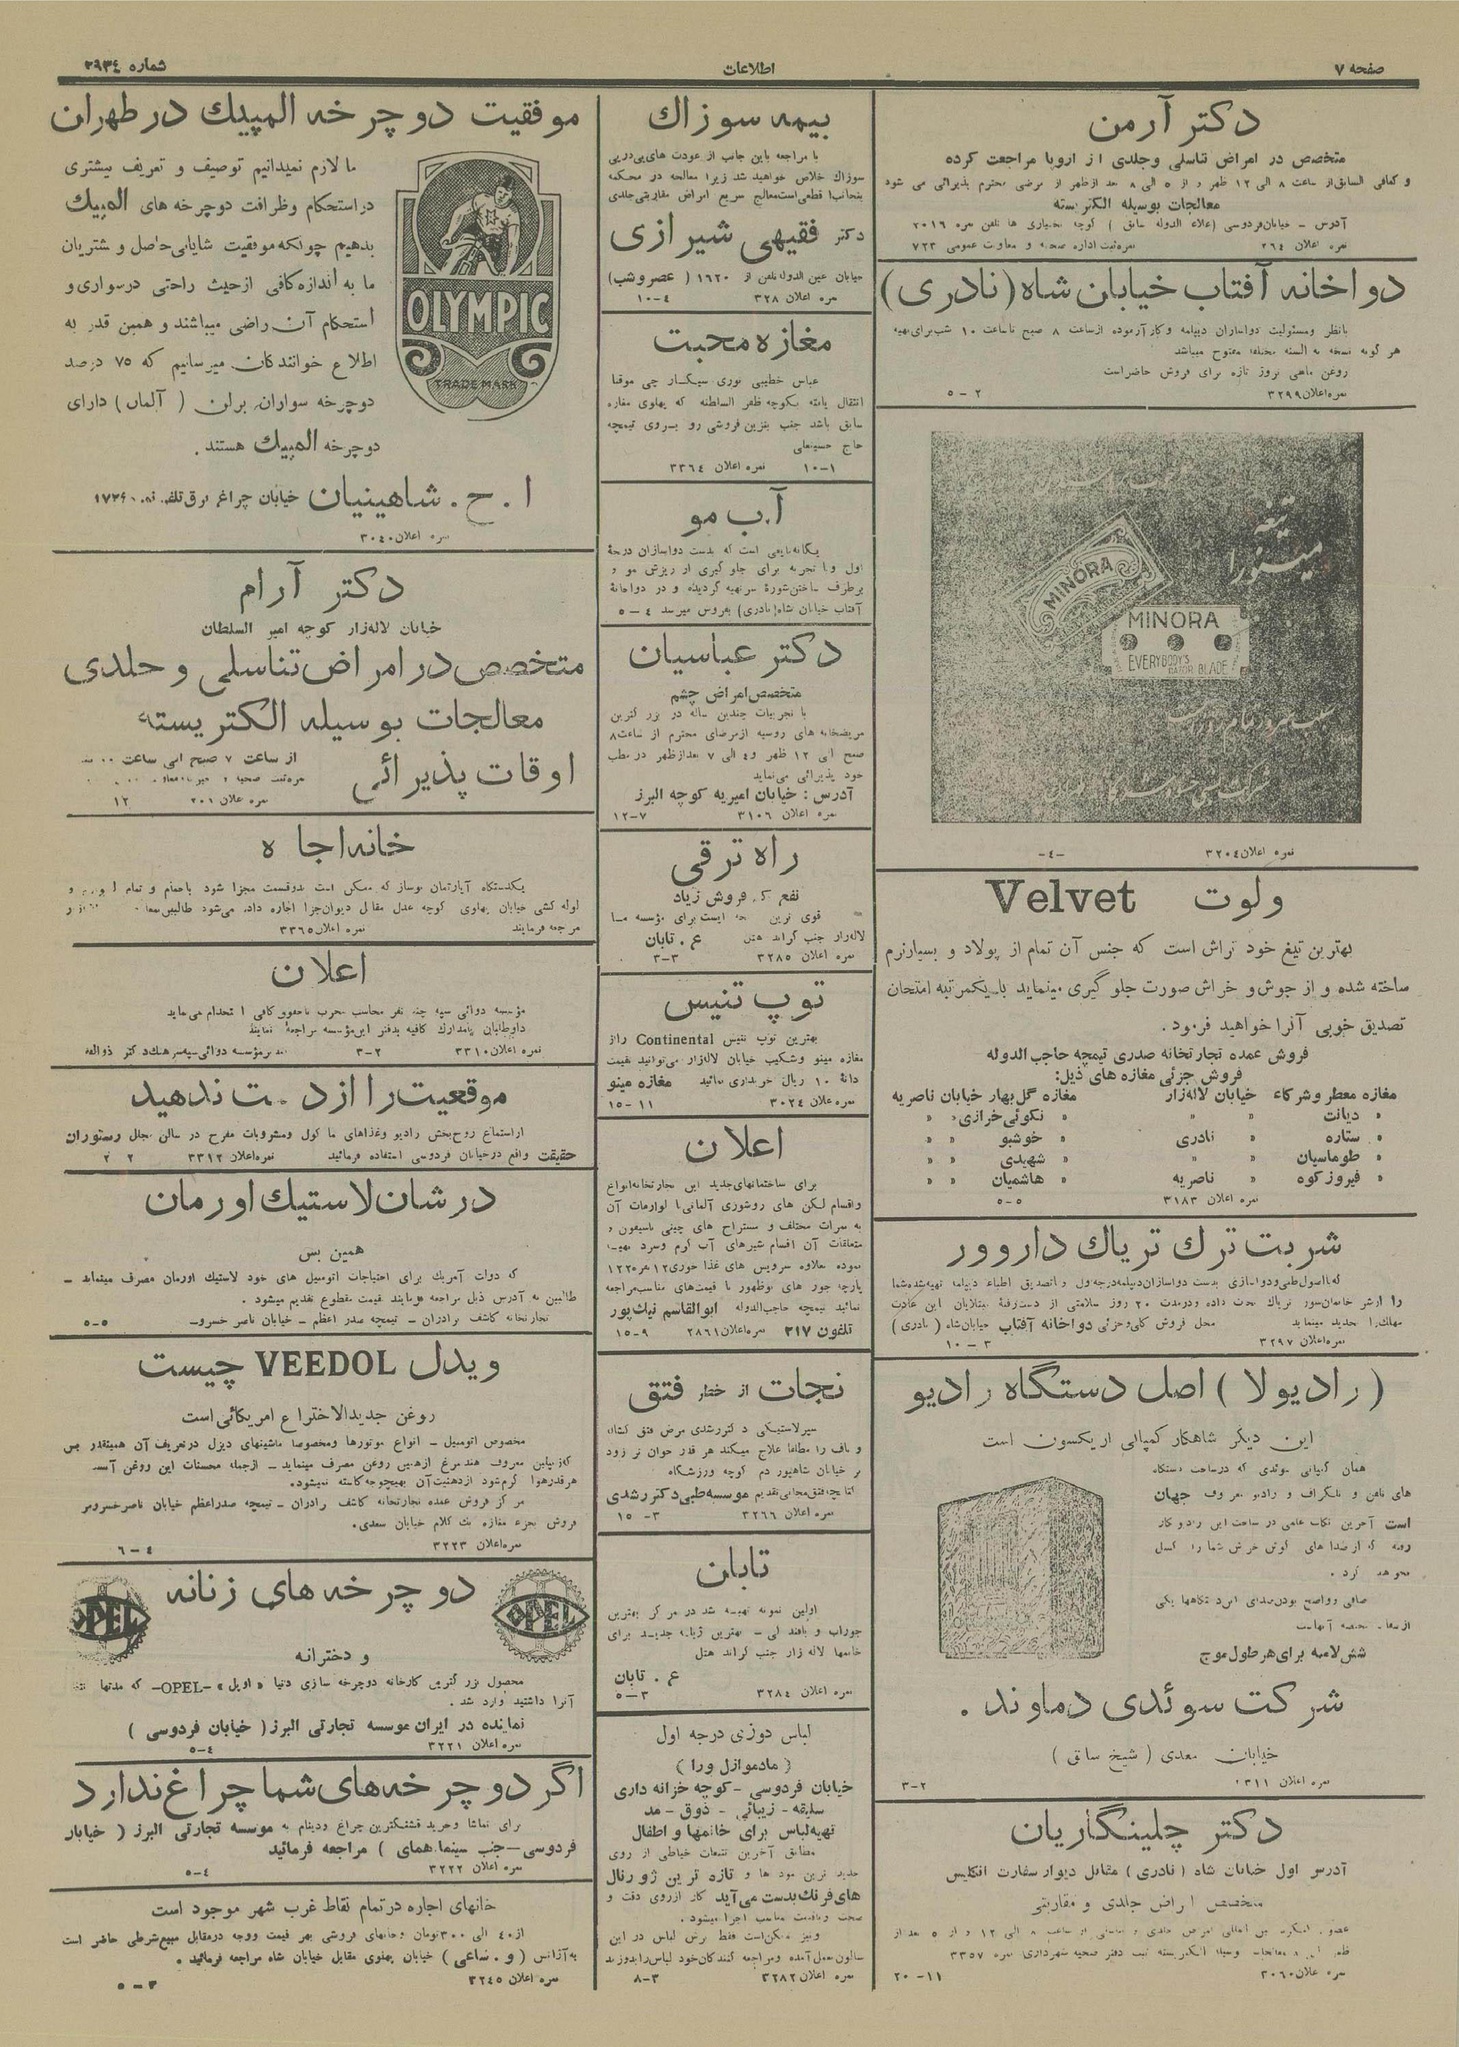 صفحه ۷
اطلاعات
شماره ۲۹۳٤
دکتر آرمن
متخصص در امراض تناسلی وجلدی از اروپا مراجعت کرده
و کمافی السابق از ساعت ۸ الی ۱۲ ظهر و از ۵ الی ۸ بعد ازظهر از مرضی محترم پذیرائی می شود
معالجات بوسیله الکتریسته
آدرس - خیابان فردوسی (علاء الدوله سابق) کوچه بختیاری ها تلفن نمره ۲۰۱۶
نمره اعلان ۲٦٤
نمره ثبت اداره صحیه و معاونت عمومی ۷۲۳
دواخانه آفتاب خیابان شاه (نادری)
بانظر ومسئولیت دواسازان دیپلمه وکار آزموده ازساعت ۸ صبح تاساعت ۱۰ شب برای تهیه
هر گونه نسخه به السنه مختلفه مفتوح میباشد
روغن ماهی نروژ تازه برای فروش حاضراست
نمره اعلان ۳۲۹۹
۲ - ۵
تیغه
مینورا
MINORA
MINORA
EVERYBODY'S
RAZOR BLADE
نمره اعلان ۳۲۰٤
-٤-
ولوت Velvet
بهترین تیغ خود تراش است که جنس آن تمام از پولاد و بسیارنرم
ساخته شده و از جوش و خراش صورت جلو گیری مینماید با یکمرتبه امتحان
تصدیق خوبی آنرا خواهید فرمود.
فروش عمده تجارتخانه صدری تیمچه حاجب الدوله
فروش جزئی مغازه های ذیل:
مغازه معطر وشرکاء خیابان لاله زار مغازه گل بهار خیابان ناصریه
« دیانت « « « نکوئی خرازی « «
« ستاره « نادری « خوشبو « «
« طوماسیان « « « شهیدی « «
« فیروز کوه « ناصریه « هاشمیان « «
نمره اعلان ۳۱۸۳
۵-۵
شربت ترک تریاک داروور
که بااصول طبی ودواسازی بدست دواسازان دیپلمه درجه اول و باتصدیق اطباء دیپلمه تهیه شده شما
را از شر خانمانسوز تریاک نجات داده ودرمدت ۲۰ روز سلامتی از دست رفتهٔ مبتلایان این عادت
مهلک را تجدید مینماید محل فروش کلی وجزئی دواخانه آفتاب خیابان شاه (نادری)
نمره اعلان ۳۲۹۷
۳ - ۱۰
(رادیولا) اصل دستگاه رادیو
این دیگر شاهکار کمپانی اریکسون است
همان کمپانی سوئدی که در ساخت دستگاه
های تلفن و تلگراف و رادیو معروف جهان
است آخرین نکات علمی در ساخت این رادیو کار
رفته که از صدا های گوش خرش شما را کسل
نخواهد کرد.
صافی و واضح بودن صدای این دستگاهها یکی
شش لامپه برای هر طول موج
شرکت سوئدی دماوند.
خیابان سعدی (شیخ سابق)
نمره اعلان ۳۳۱۱
۲-۳
دکتر چلینگاریان
آدرس اول خیابان شاه (نادری) مقابل دیوار سفارت انگلیس
متخصص امراض جلدی و مقاربتی
نمره اعلان ۳۰٦۰
۱۱- ۲۰
بیمه سوزاک
با مراجعه باین جانب از عودت های پی درپی
سوزاک خلاص خواهید شد زیرا معالجه در محکمه
اینجانب قطعی است معالج سریع امراض مقاربتی جلدی
دکتر فقیهی شیرازی
خیابان عین الدوله تلفن از ۱٦۲۰ (عصر وشب)
نمره اعلان ۳۲۸
٤-۱۰
مغازه محبت
عباس خطیبی نوری سیگار چی موقتا
انتقال یافته بکوچه ظفر السلطنه که پهلوی مغازه
سابق باشد جنب بنزین فروشی رو بروی تیمچه
حاج حسینعلی
نمره اعلان ۳۳٦٤
۱-۱۰
آب مو
یگانه مایعی است که بدست دواسازان درجهٔ
اول وبا تجربه برای جلو گیری از ریزش مو و
برطرف ساختن شورهٔ سر تهیه گردیده و در دواخانهٔ
آفتاب خیابان شاه (نادری) بفروش میرسد ٤ - ۵
دکتر عباسیان
متخصص امراض چشم
با تجربیات چندین ساله در بزرگترین
مریضخانه های روسیه ازمرضای محترم از ساعت ۸
صبح الی ۱۲ ظهر و٤ الی ۷ بعدازظهر در مطب
خود پذیرائی می نماید
آدرس: خیابان امیریه کوچه البرز
نمره اعلان ۳۱۰٦
۷-۱۲
راه ترقی
نفع کم فروش زیاد
لاله زار جنب گراند هتل ع. تابان
نمره اعلان ۳۲۸۵
۳-۳
توپ تنیس
بهترین توپ تنیس Continental را از
مغازه مینو وشکیب خیابان لاله زار می توانید بقیمت
دانهٔ ۱۰ ریال خریداری نمائید مغازه مینو
نمره اعلان ۳۰۲٤
۱۱-۱۵
اعلان
برای ساختمانهای جدید این تجارتخانه انواع
واقسام لگن های روشوری آلمانی با لوازمات آن
به نمرات مختلف و مستراح های چینی باسیفون و
متعلقات آن اقسام شیرهای آب گرم وسرد تهیه
نموده بعلاوه سرویس های غذا خوری ۱۲ نفره ۱۲۲
پارچه جور های نوظهور با قیمت های مناسب مراجعه
نمائید تیمچه حاجب الدوله ابوالقاسم نیک پور
تلفون ۳۱۷ نمره اعلان ۲۸٦۱ ۹-۱۵
نجات از خطر فتق
سیر لاستیکی دکتر رشدی مرض فتق کشاله
و ناف را مطلقا علاج میکند هر قدر جوان تر زود
تر خیابان شاهپور دم کوچه ورزشگاه
موسسه طبی دکتر رشدی
نمره اعلان ۳۲٦٦
۳- ۱۵
تابان
اولین نمونه تهیه شد در مرکز بهترین
خانمها لاله زار جنب گراند هتل
ع. تابان
نمره اعلان ۳۲۸٤
۳-۵
لباس دوزی درجه اول
(مادموازل ورا)
خیابان فردوسی - کوچه خزانه داری
سلیقه - زیبائی - ذوق - مد
تهیه لباس برای خانمها و اطفال
مطابق آخرین تتبعات خیاطی از روی
جدید ترین مود ها و تازه ترین ژورنال
های فرنگ بدست می آید کار ازروی دقت و
ونیز ممکن است فقط برش لباس در این
سالون بعمل آمده ومراجعه کنندگان خود لباس را بدوزند
نمره اعلان ۳۲۸۲
۳-۸
موفقیت دوچرخه المپیک در طهران
ما لازم نمیدانیم توصیف و تعریف بیشتری
دراستحکام وظرافت دوچرخه های المپیک
بدهیم چونکه موفقیت شایانی حاصل و مشتریان
ما به اندازه کافی ازحیث راحتی درسواری و
استحکام آن راضی میباشند و همین قدر به
اطلاع خوانندگان میرسانیم که ۷۵ درصد
دوچرخه سواران برلن (آلمان) دارای
دوچرخه المپیک هستند.
OLYMPIC
TRADE MARK
ا. ح. شاهینیان خیابان چراغ برق تلفن
نمره اعلان ۳۰٤۰
دکتر آرام
خیابان لاله زار کوچه امیر السلطان
متخصص در امراض تناسلی و جلدی
معالجات بوسیله الکتریسته
اوقات پذیرائی
از ساعت ۷ صبح الی ساعت
نمره اعلان ۲۰۱
۱۲
خانه اجاره
یکدستگاه آپارتمان نوساز که ممکن است بدوقسمت مجزا شود باحمام و تمام لوازم و
لوله کشی خیابان پهلوی کوچه عدل مقابل دیوان جزا اجاره داده می شود
مرجعه فرمایند نمره اعلان ۳۳٦۵
اعلان
مؤسسه دوائی سپه چند نفر محاسب مجرب باحقوق کافی استخدام می نماید
داوطلبان بامدارک کافیه بدفتر این مؤسسه مراجعه نمایند
نمره اعلان ۳۳۱۰ ۲-۳
موقعیت را از دست ندهید
ازاستماع روح بخش رادیو وغذاهای ما کول ومشروبات مفرح در سالن مجلل رستوران
حقیقت واقع درخیابان فردوسی استفاده فرمائید نمره اعلان ۳۳۱۲ ۲ ۲
در شان لاستیک اورمان
همین بس
که دولت آمریک برای احتیاجات اتومبیل های خود لاستیک اورمان مصرف مینماید -
طالبین به آدرس ذیل مراجعه فرمایند قیمت مقطوع تقدیم میشود.
تجارتخانه کاشف برادران - تیمچه صدر اعظم - خیابان ناصر خسرو- ۵-۵
ویدل VEEDOL چیست
روغن جدیدالاختراع امریکائی است
مخصوص اتومبیل - انواع موتورها ومخصوصا ماشینهای دیزل درتعریف آن همینقدر بس
که زپلین معروف هندنبرغ ازهمین روغن مصرف مینماید - ازجمله محسنات این روغن آنست
هرقدر هوا گرم شود ازدهنیت آن بهیچوجه کاسته نمیشود.
مرکز فروش عمده تجارتخانه کاشف برادران - تیمچه صدراعظم خیابان ناصرخسرو بر
فروش بجزء مغازه یک کلام خیابان سعدی.
نمره اعلان ۳۲۲۳ ٤-٦
دوچرخه های زنانه
و دخترانه
OPEL
OPEL
محصول بزرگترین کارخانه دوچرخه سازی دنیا «اوپل» -OPEL- که مدتها
آنرا داشتید وارد شد.
نماینده در ایران موسسه تجارتی البرز (خیابان فردوسی)
نمره اعلان ۳۲۲۱
٤-۵
اگر دوچرخه های شما چراغ ندارد
برای تماشا وخرید قشنگترین چراغ ودینام به موسسه تجارتی البرز (خیابان
فردوسی - جنب سینما همای) مراجعه فرمائید
نمره اعلان ۳۲۲۲
٤-۵
خانهای اجاره درتمام نقاط غرب شهر موجود است
از٤۰ الی ۳۰۰ تومان وخانهای فروشی بهر قیمت ووجه درمقابل مبیع شرطی حاضر است
به آژانس (و. ساعی) خیابان پهلوی مقابل خیابان شاه مراجعه فرمائید.
نمره اعلان ۳۲٤۵
۳ - ۵